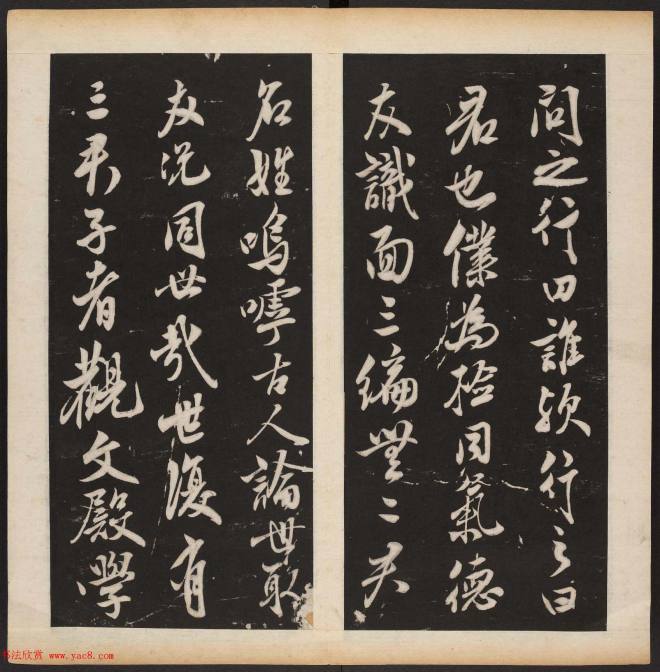 問之行田誰歟行之曰
君也僕為撿同氣德
友識面三編無二夫
名姓嗚嘑古人論世取
友況同世哉世復有
三君子者觀文殿學
书法欣赏 www.yac8.com